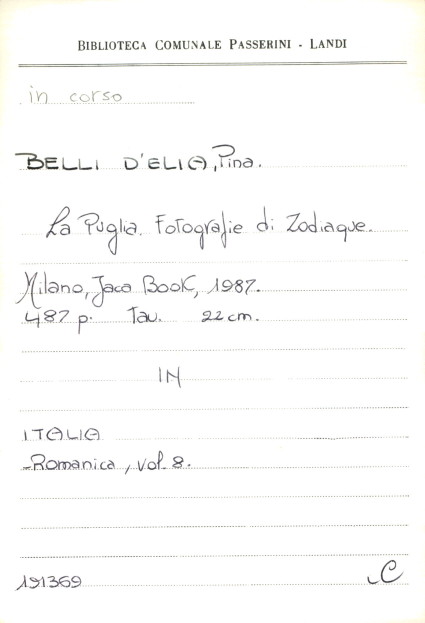 BIBLIOTECA COMUNALE PASSERINI - LANDI
in corso
BELLI D'ELIA, Pina.
La Puglia. Fotografie di Zodiaque.
Milano, Jaca Book, 1987.
487 p. Tav. 22 cm.
IN
ITALIA
Romanica, vol. 8.
191369 C